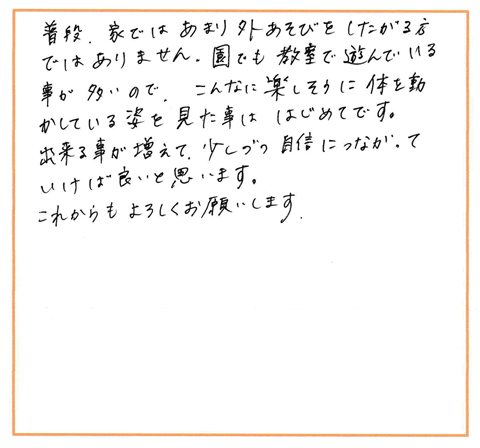 普段、家ではあまり外あそびをしたがる方
ではありません。園でも教室で遊んでいる
事が多いので、こんなに楽しそうに体を動
かしている姿を見た事ははじめてです。
出来る事が増えて、少しづつ自信につながって
いけば良いと思います。
これからもよろしくお願いします。